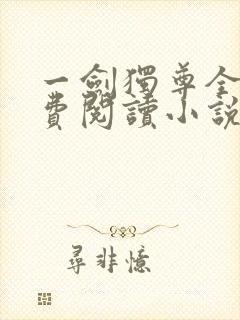 一劍獨尊全
費閱讀小說
尋非憶